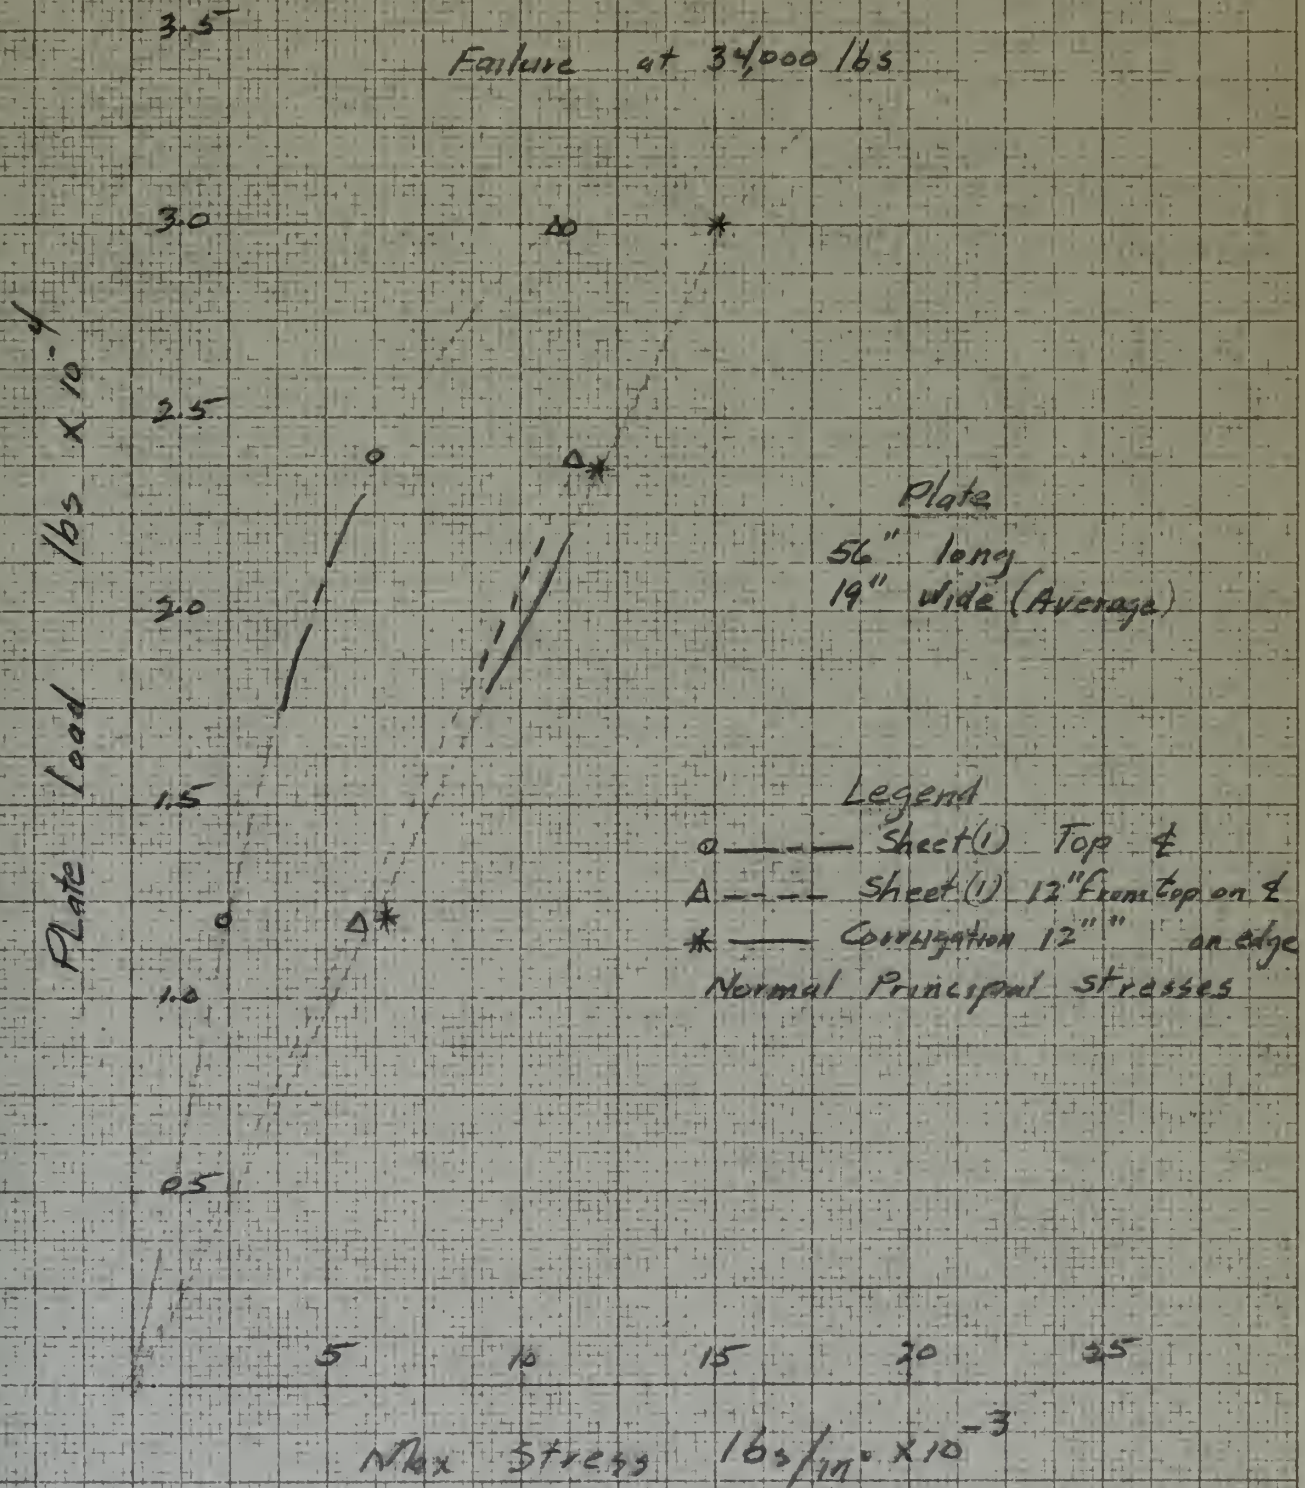 3.5
Failure at 34,000 lbs
3.0
2.5
Plate Load lbs x 10⁻⁴
Plate
56" long
19" wide (Average)
2.0
1.5
Legend
Sheet (1) Top ℄
Sheet (1) 12" from top on ℄
Corrugation 12" " on edge
Normal Principal Stresses
1.0
0.5
5 10 15 20 25
Max Stress lbs/in² x 10⁻³